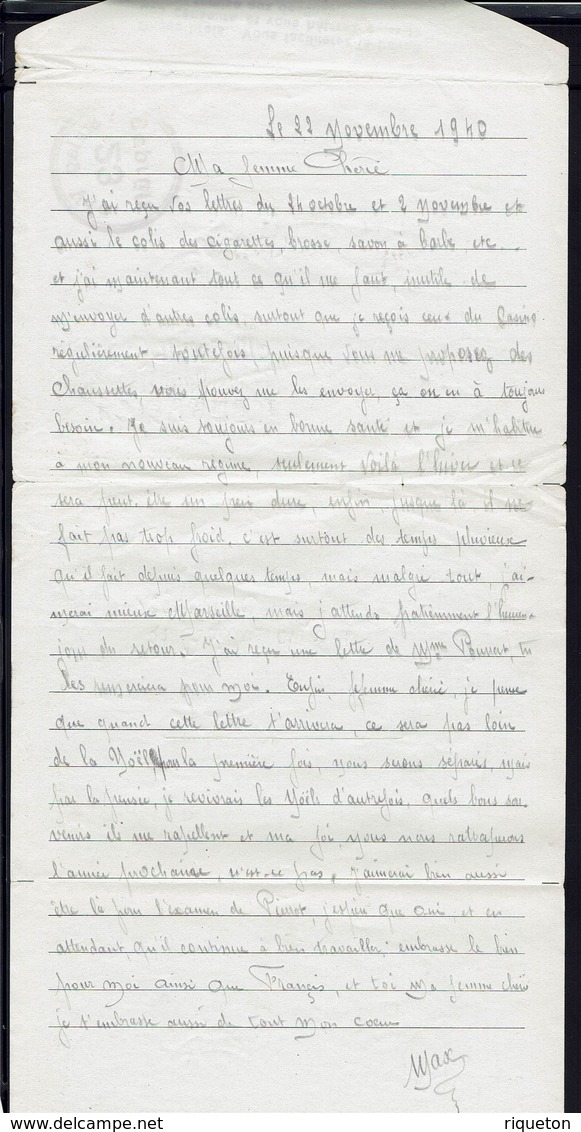 Le 22 Novembre 1940
Ma femme Chérie
J'ai reçu vos lettres du 24 octobre et 2 novembre et
aussi le colis des cigarettes, brosse, savon à barbe, etc...
et j'ai maintenant tout ce qu'il me faut, inutile de
m'envoyer d'autres colis, surtout que je reçois ceux du Casino
régulièrement, toutefois, puisque vous me proposez des
Chaussettes, vous pouvez me les envoyer, ça on en à toujours
besoin. Je suis toujours en bonne santé et je m'habitue
à mon nouveau régime, seulement voilà l'hiver et ce
sera peut-être un peu dure, enfin, jusque là il ne
fait pas trop froid, c'est surtout des temps pluvieux
qu'il fait depuis quelques temps, mais malgré tout, j'ai-
merai mieux Marseille, mais j'attends patiemment l'heureux
jour du retour. J'ai reçu une lettre de Mme tu
les remerciera pour moi. Enfin, femme chérie, je pense
que quand cette lettre t'arrivera, ce sera pas loin
de la Noël, pour la première fois, nous serons séparés, mais
par la pensée, je revivrais les Noëls d'autrefois, quels bons sou-
venirs ils me rapellent et ma foi, nous nous ratraperons
l'année prochaine, n'est-ce pas, j'aimerai bien aussi
être là pour l'examen de Pierrot, j'espère que oui, et en
attendant, qu'il continue à bien travailler, embrasse le bien
pour moi ainsi que Françis, et toi ma femme chérie
je t'embrasse aussi de tout mon coeur
Max
www.delcampe.net
riqueton